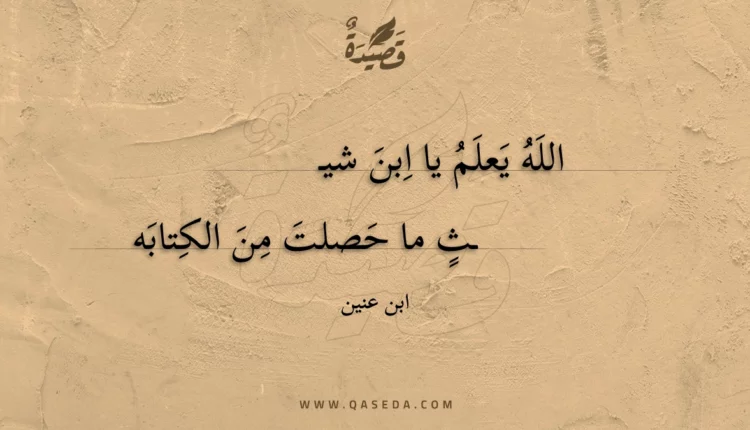 قَصِيدَةٌ
اللَهُ يَعلَمُ يا اِبنَ شيـ
ـثٍ ما حَصلتَ مِنَ الكِتابَه
ابن عنين
WWW.QASEDA.COM